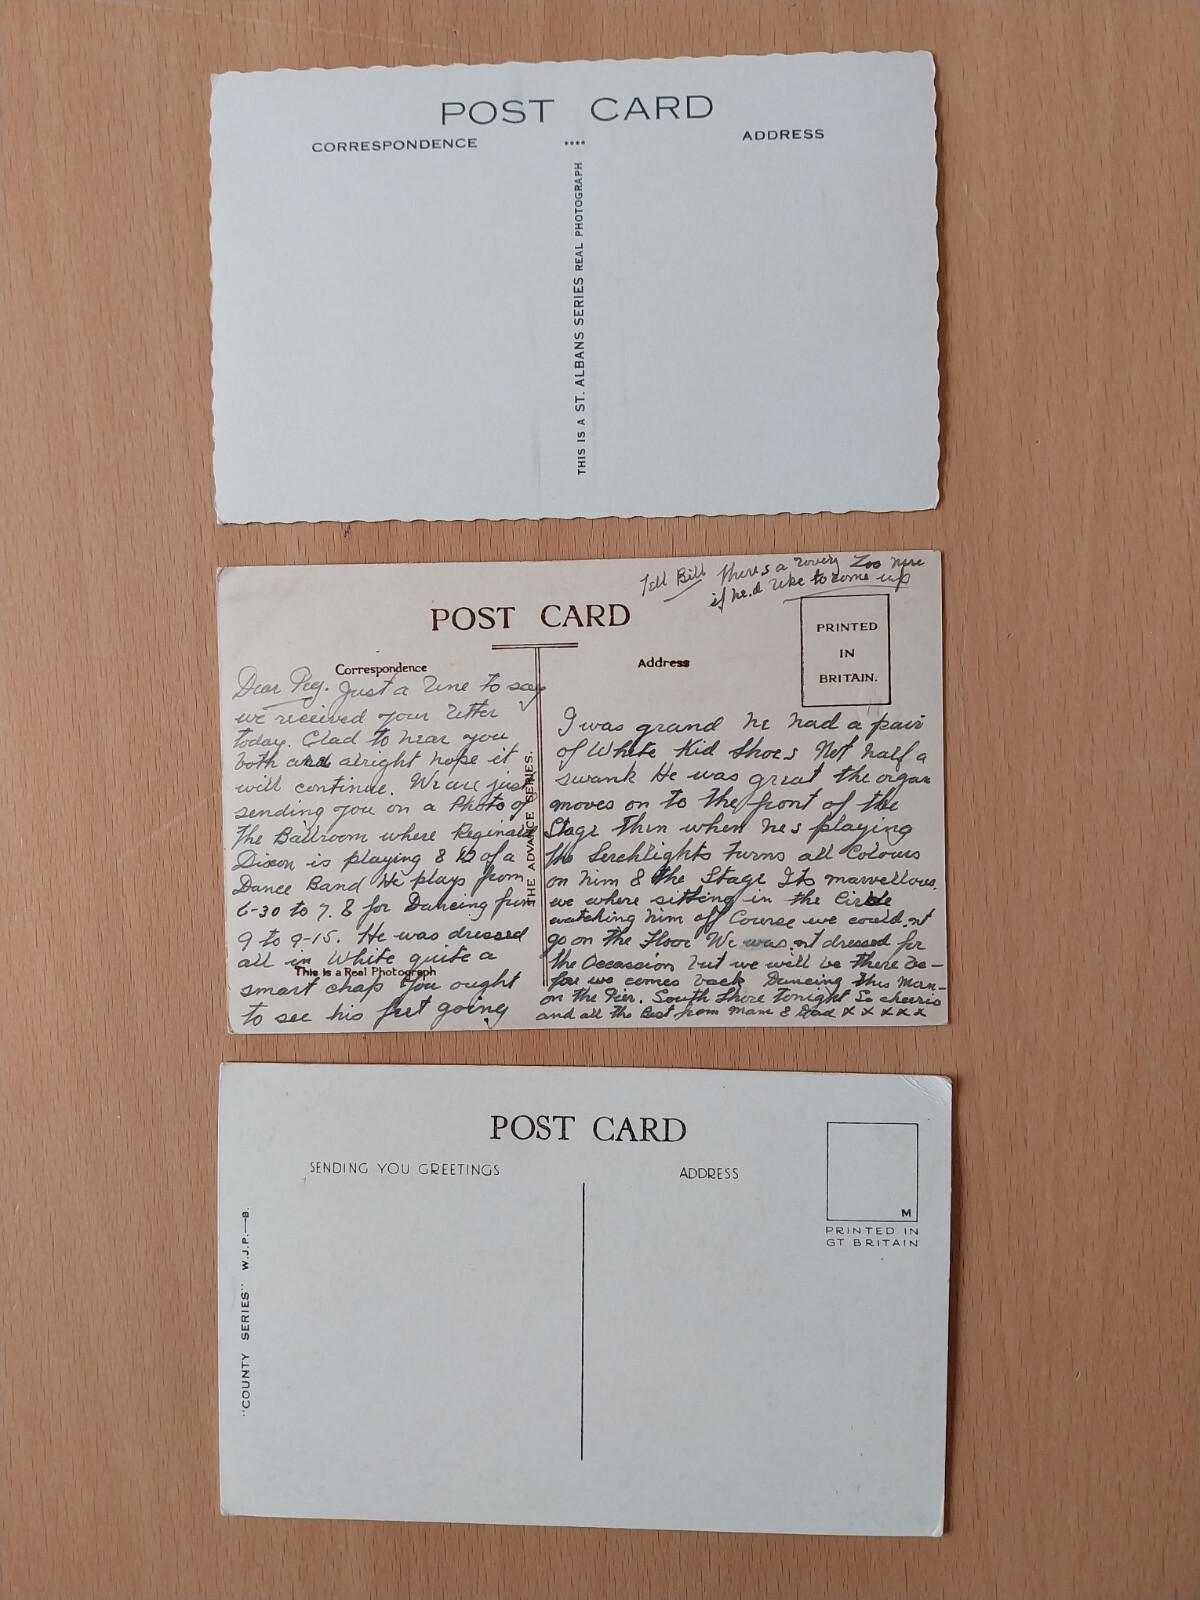 POST CARD
CORRESPONDENCE
ADDRESS
THIS IS A ST. ALBANS SERIES REAL PHOTOGRAPH
Tell Bill theres a lovely Zoo here
if he.d like to come up
POST CARD
PRINTED
IN
BRITAIN.
Correspondence
Address
THE ADVANCE SERIES.
This is a Real Photograph
Dear Peg. Just a line to say
we received your letter
today. Glad to hear you
both are alright hope it
will continue. We are just
sending you on a Photo of
the Ballroom where Reginald
Dixon is playing & of a
Dance Band He plays from
6-30 to 7. & for Dancing from
9 to 9-15. He was dressed
all in White quite a
smart chap You ought
to see his feet going
I was grand he had a pair
of White Kid Shoes Not half a
swank He was great the organ
moves on to the front of the
Stage Then when hes playing
the Serchlights turns all Colours
on him & the Stage Its marvellous
we where sitting in the Circle
watching him off Course we could.nt
go on the Floor We was.nt dressed for
the Occassion but we will be there be-
fore we comes back Dancing this
on the Pier. South Shore tonight So cheerio
and all the Best from Mam & Dad x x x x x
POST CARD
SENDING YOU GREETINGS
ADDRESS
M
PRINTED IN
GT BRITAIN
"COUNTY SERIES" W.J.P.—B.